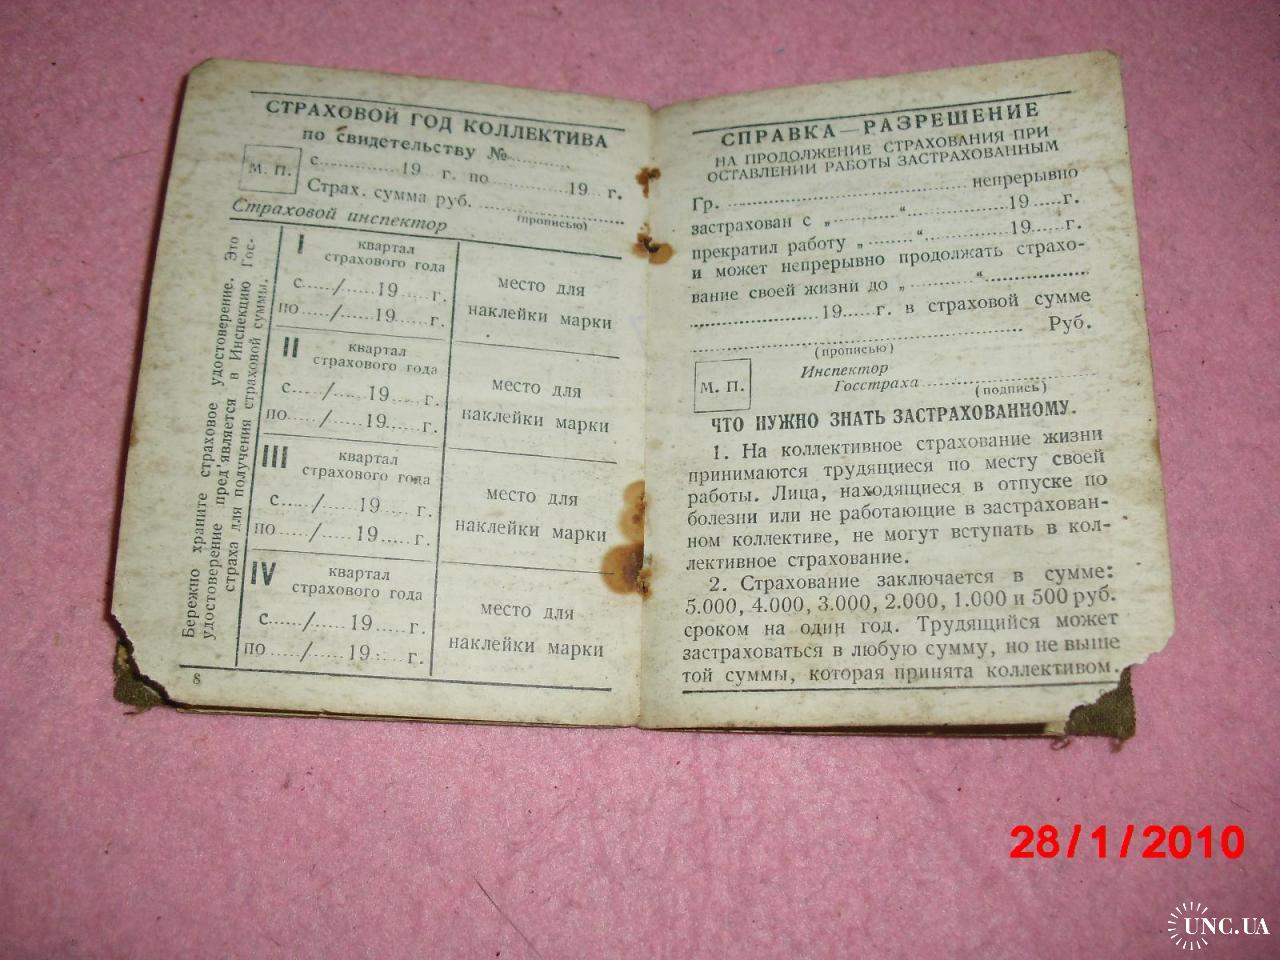 СТРАХОВОЙ ГОД КОЛЛЕКТИВА
по свидетельству №............
М. П.
с..............19 г. по..............19... г.
Страх. сумма руб. ........................
(прописью)
Страховой инспектор
Бережно храните страховое удостоверение. Это
удостоверение пред'является в Инспекцию Гос-
страха для получения страховой суммы.
I квартал
страхового года
с...../.....19.....г.
по...../.....19.....г.
место для
наклейки марки
II квартал
страхового года
с...../.....19.....г.
по...../.....19.....г.
место для
наклейки марки
III квартал
страхового года
с...../.....19.....г.
по...../.....19.....г.
место для
наклейки марки
IV квартал
страхового года
с...../.....19.....г.
по...../.....19.....г.
место для
наклейки марки
8
СПРАВКА — РАЗРЕШЕНИЕ
НА ПРОДОЛЖЕНИЕ СТРАХОВАНИЯ ПРИ
ОСТАВЛЕНИИ РАБОТЫ ЗАСТРАХОВАННЫМ
Гр. .................................... непрерывно
застрахован с „..........“...............19.....г.
прекратил работу „........“............19.....г.
и может непрерывно продолжать страхо-
вание своей жизни до „..........“...............
....................19.....г. в страховой сумме
............................................... Руб.
(прописью)
М. П.
Инспектор
Госстраха ........................
(подпись)
ЧТО НУЖНО ЗНАТЬ ЗАСТРАХОВАННОМУ.
1. На коллективное страхование жизни
принимаются трудящиеся по месту своей
работы. Лица, находящиеся в отпуске по
болезни или не работающие в застрахован-
ном коллективе, не могут вступать в кол-
лективное страхование.
2. Страхование заключается в сумме:
5.000, 4.000, 3.000, 2.000, 1.000 и 500 руб.
сроком на один год. Трудящийся может
застраховаться в любую сумму, но не выше
той суммы, которая принята коллективом.
28/1/2010
UNC.UA